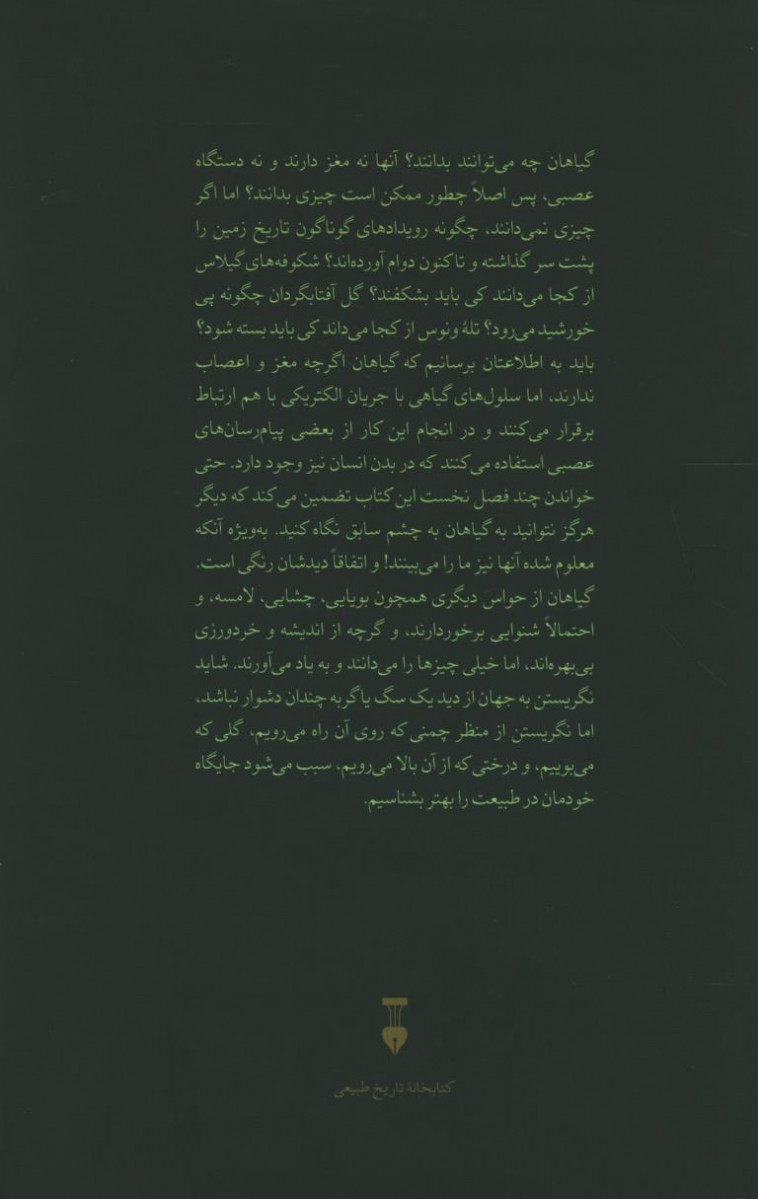 گیاهان چه می‌توانند بدانند؟ آنها نه مغز دارند و نه دستگاه
عصبی، پس اصلاً چطور ممکن است چیزی بدانند؟ اما اگر
چیزی نمی‌دانند، چگونه رویدادهای گوناگون تاریخ زمین را
پشت سر گذاشته و تاکنون دوام آورده‌اند؟ شکوفه‌های گیلاس
از کجا می‌دانند کی باید بشکفند؟ گل آفتابگردان چگونه پی
خورشید می‌رود؟ تلهٔ ونوس از کجا می‌داند کی باید بسته شود؟
باید به اطلاعتان برسانیم که گیاهان اگرچه مغز و اعصاب
ندارند، اما سلول‌های گیاهی با جریان الکتریکی با هم ارتباط
برقرار می‌کنند و در انجام این کار از بعضی پیام‌رسان‌های
عصبی استفاده می‌کنند که در بدن انسان نیز وجود دارد. حتی
خواندن چند فصل نخست این کتاب تضمین می‌کند که دیگر
هرگز نتوانید به گیاهان به چشم سابق نگاه کنید. به‌ویژه آنکه
معلوم شده آنها نیز ما را می‌بینند! و اتفاقاً دیدشان رنگی است.
گیاهان از حواس دیگری همچون بویایی، چشایی، لامسه، و
احتمالاً شنوایی برخوردارند، و گرچه از اندیشه و خردورزی
بی‌بهره‌اند، اما خیلی چیزها را می‌دانند و به یاد می‌آورند. شاید
نگریستن به جهان از دید یک سگ یا گربه چندان دشوار نباشد،
اما نگریستن از منظر چمنی که روی آن راه می‌رویم، گلی که
می‌بوییم، و درختی که از آن بالا می‌رویم، سبب می‌شود جایگاه
خودمان در طبیعت را بهتر بشناسیم.
کتابخانهٔ تاریخ طبیعی